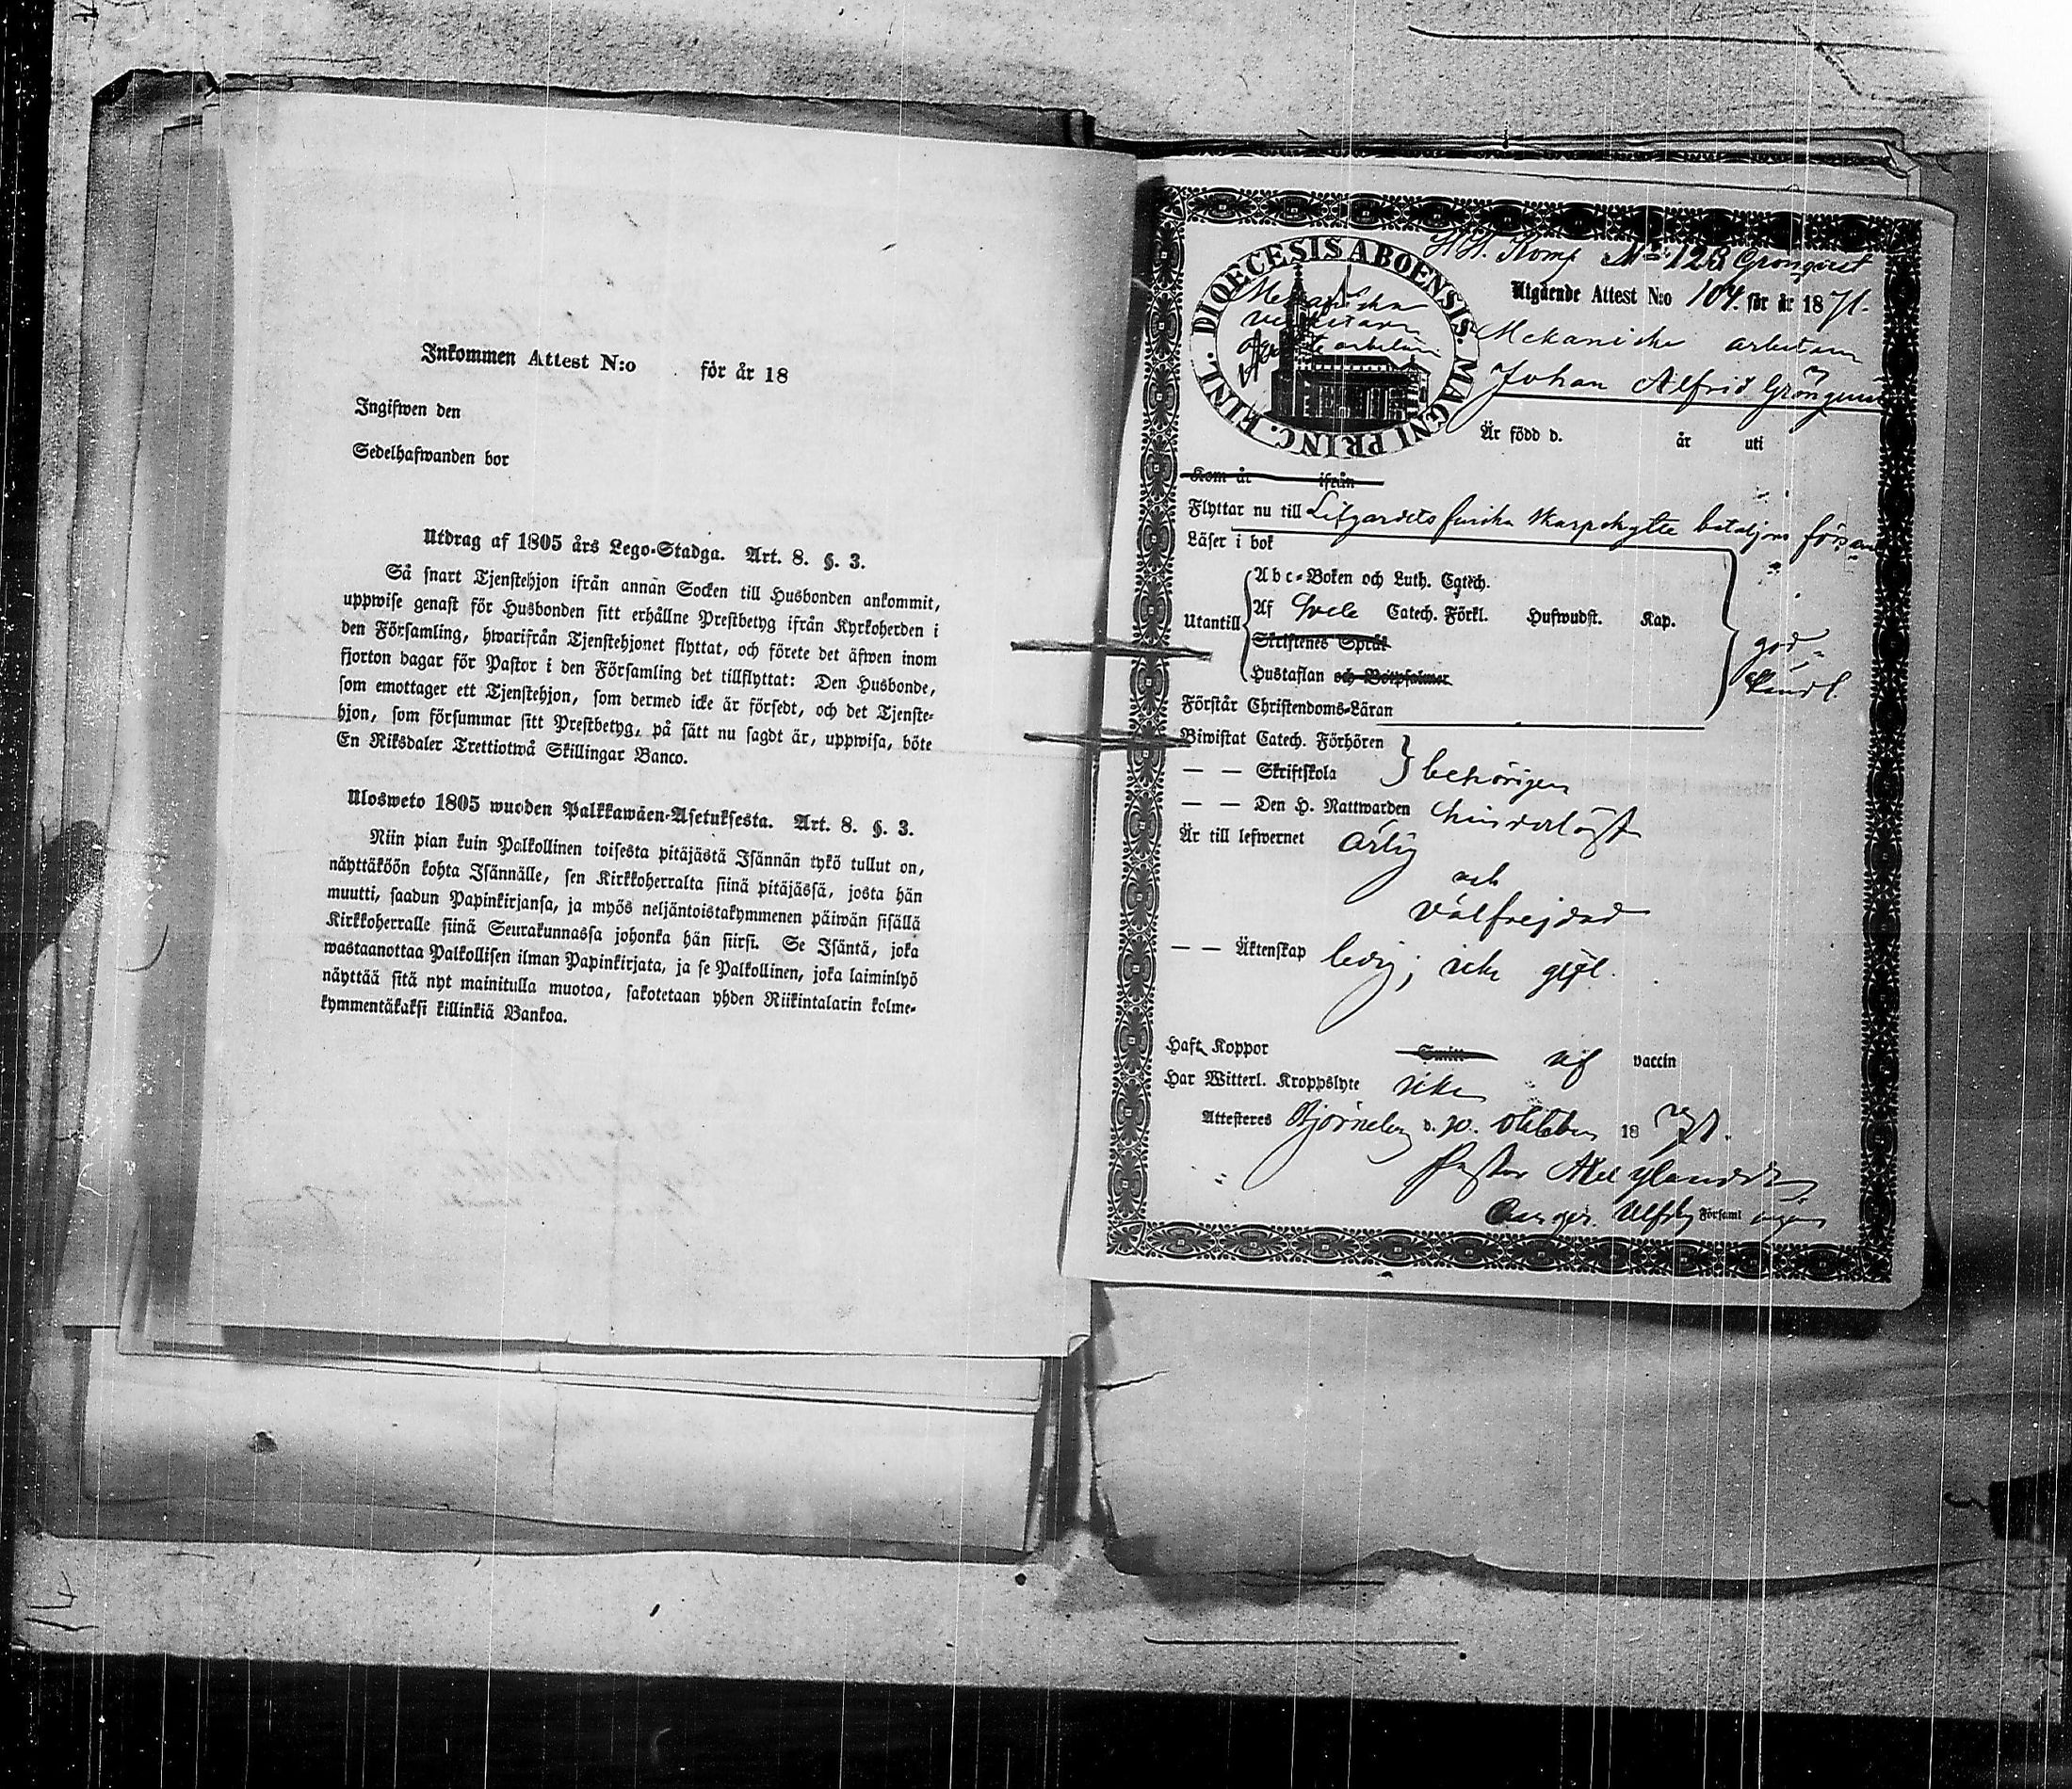 Inkommen Attest N:o för år 18
Ingifwen den
Sedelhafwanden bor
Utdrag af 1805 års Lego-Stadga. Art. 8. §. 3.
Så snart Tjenstehjon ifrån annän Socken till Husbonden ankommit,
uppwise genast för Husbonden sitt erhållne Prestbetyg ifrån Kyrkoherden i
den Församling, hwarifrån Tjenstehjonet flyttat, och förete det äfwen inom
fjorton dagar för Pastor i den Församling det tillflyttat: Den Husbonde,
som emottager ett Tjenstehjon, som dermed icke är försedt, och det Tjenste-
hjon, som försummar sitt Prestbetyg, på sätt nu sagdt är, uppwisa, böte
En Riksdaler Trettiotwå Skillingar Banco.
Ulosweto 1805 wuoden Palkkawäen-Asetuksesta. Art. 8. §. 3.
Niin pian kuin Palkollinen toisesta pitäjästä Isännän tykö tullut on,
näyttäköön kohta Isännälle, sen Kirkkoherralta siinä pitäjässä, josta hän
muutti, saadun Papinkirjansa, ja myös neljäntoistakymmenen päiwän sisällä
Kirkkoherralle siinä Seurakunnassa johonka hän siirsi. Se Isäntä, joka
wastaanottaa Palkollisen ilman Papinkirjata, ja se Palkollinen, joka laiminlyö
näyttää sitä nyt mainitulla muotoa, sakotetaan yhden Riikintalarin kolme-
kymmentäkaksi killinkiä Bankoa.
Komp No 123 Grönqvist
DIOECESIS ABOENSIS. MAGNI PRINC. FINL.
Utgående Attest N:o 104. för år 1871.
Mekaniske arbetaren
Johan Alfrid Grönqvist
Är född d. år uti
Kom år ifrån
Flyttar nu till Lifgardets finska skarpskytte bataljons
Läser i bok
Utantill
Abc-Boken och Luth. Catech.
Af Svele Catech. Förkl. Hufwudst. Kap.
Skriftenes Språk
Hustaflan och Botpsalmer
god-
känd.
Förstår Christendoms-Läran
Biwistat Catech. Förhören
— — Skriftskola behörigen
— — Den H. Nattwarden hinderlöst
Är till lefwernet ärlig
och
välfrejdad
— — Äktenskap ledig; icke gift.
Haft Koppor Smitt vaccin
Har Witterl. Kroppslyte icke
Attesteres Björneborg d. 20. Oktober 1871.
Pastor Axel
Ulfsby Församl